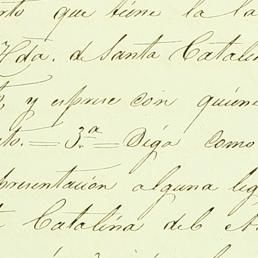 que tiene la la
Hda. de Santa Catali
y esprese con quiene
to. = 3.a = Diga como
presentación alguna leg
Catalina del A